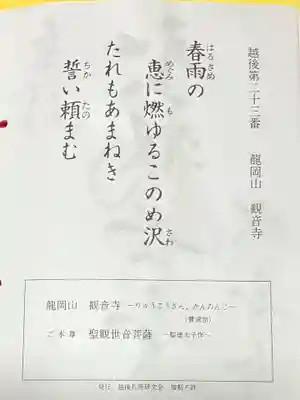 越後第二十三番　龍岡山　観音寺
春雨の
恵に燃ゆるこのめ沢
たれもあまねき
誓い頼まむ
はるさめ
めぐみ　も　さわ
ちか　たの
龍岡山　観音寺 ―りゅうこうざん、かんのんじ―
(曹洞宗)
ご本尊　聖観世音菩薩 ―聖徳太子作―
発行　越後札所研究会